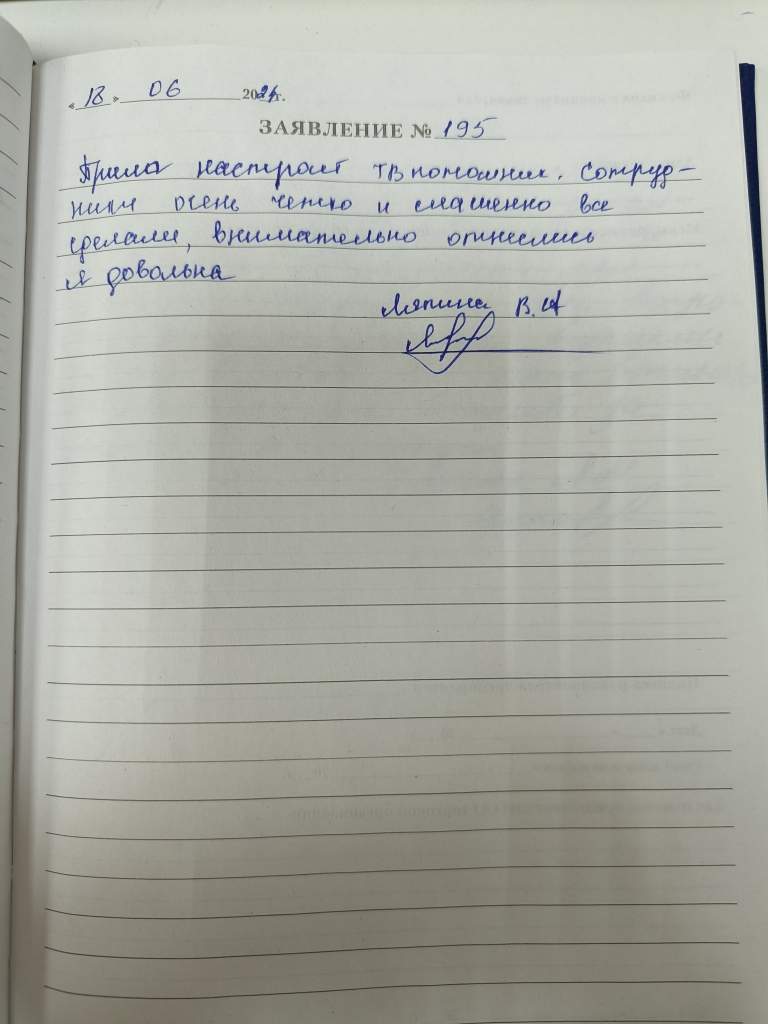 «18» 06 2024г.
ЗАЯВЛЕНИЕ № 195
настроит ТВ помошник. Сотруд-
ники очень четко и слашенно все
сделали, внимательно отнислись
я довольна
Ляпина В.А